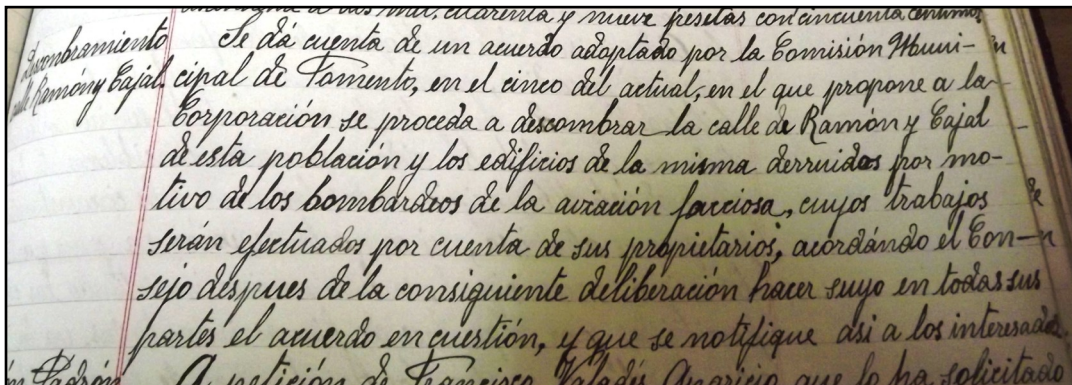 dos mil, cuarenta y nueve pesetas con cincuenta centimos
Descombramiento Se dá cuenta de un acuerdo adoptado por la Comisión Muni-
calle Ramón y Cajal. cipal de Fomento, en el cinco del actual, en el que propone a la
Corporación se proceda a descombrar la calle de Ramón y Cajal
de esta población y los edificios de la misma derruidos por mo-
tivo de los bombardeos de la aviación facciosa, cuyos trabajos
serán efectuados por cuenta de sus propietarios, acordándo el Con-
sejo despues de la consiguiente deliberación hacer suyo en todas sus
partes el acuerdo en cuestión, y que se notifique asi a los interesados.
Padrón A petición de Francisco Valadés Aparicio que lo ha solicitado